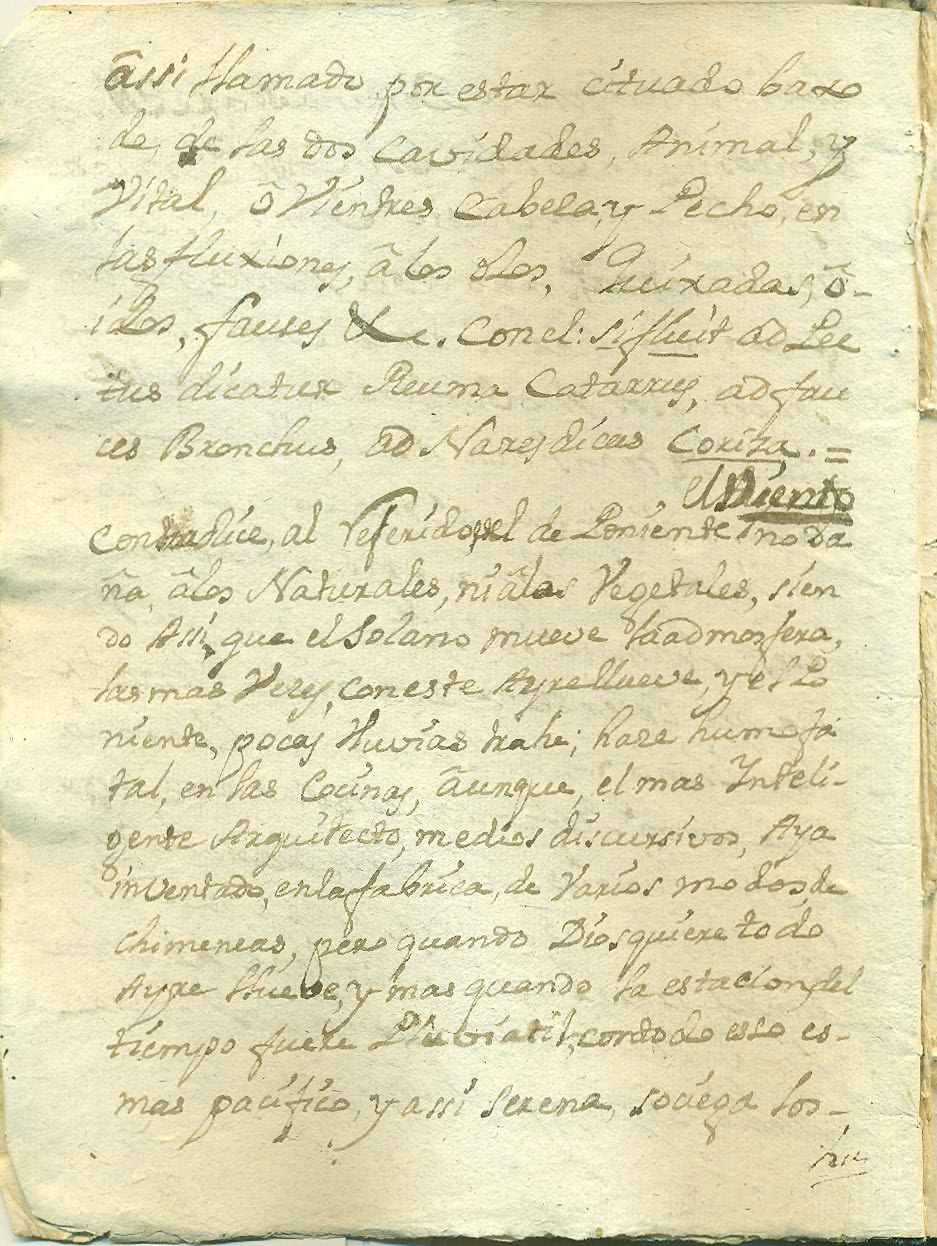 âssi llamado por estar cituado baxo
de, de las dos cavidades, Animal, y
Vital, ô Vientres, Cabeza, y Pecho, en
las fluxiones, â los oLos, Quixadas, ô-
idos, fauses &c. Con el: si fluit ad Pec
tus dicatur Reuma Catarrus, ad fau
ces Bronchus, ad Nares dicas Coriza. =
el Viento
Contradice, al referido, el de Poniente no da
ña, âlos Naturales, ni âlas Vegetales, sien
do Assi, que el Solano mueve la admosfera,
las mas Vezes, con este Ayre llueve, y el Po
niente, pocas lluvias trahe; haze humo fa
tal, en las Cocinas, âunque, el mas Inteli-
gente Arquitecto, medios discursivos, Aya
inventado, en la fabrica, de Varios modos, de
chimeneas, pero quando Dios quiere todo
Ayre llueve, y mas quando la estacion del
tiempo fuere Pluviatil, con todo esso es-
mas pacifico, y assi serena, sociega los-
hu